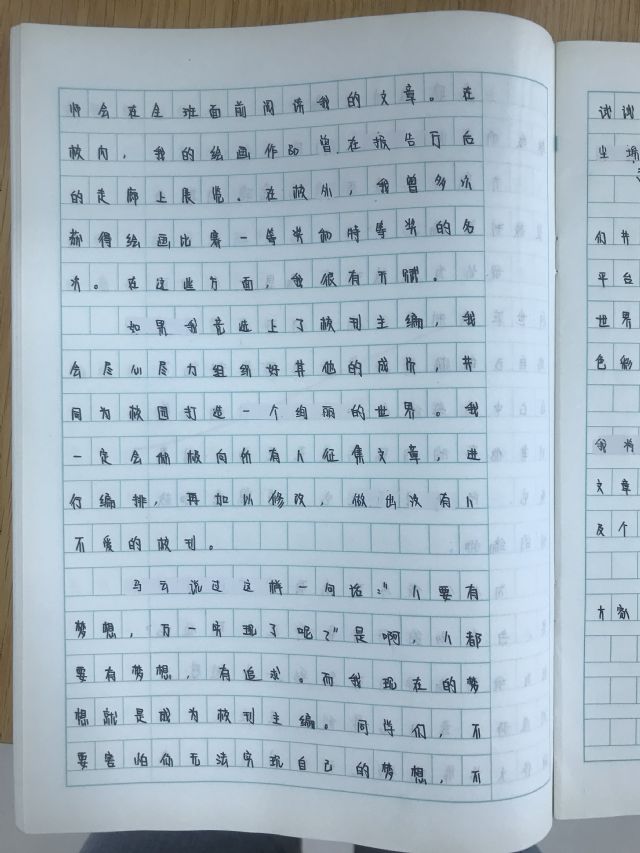 师会在全班面前阅读我的文章。在
校内，我的绘画作品曾在报告厅后
的走廊上展览。在校外，我曾多次
都得绘画比赛一等奖和特等奖的名
次。在这些方面，我很有天赋。
如果我竞选上了校刊主编，我
会尽心尽力组织好其他的成员，并
同为校园打造一个绚丽的世界。我
一定会积极向所有人征集文章，进
行编排，再加以修改，做出没有人
不爱的校刊。
马云说过这样一句话："人要有
梦想，万一实现了呢？"是啊，人都
要有梦想，有追求。而我现在的梦
想就是成为校刊主编。同学们，不
要害怕你无法实现自己的梦想，不
试试
坐
们并
平台
世界
色彩
我
文章
及个
大家